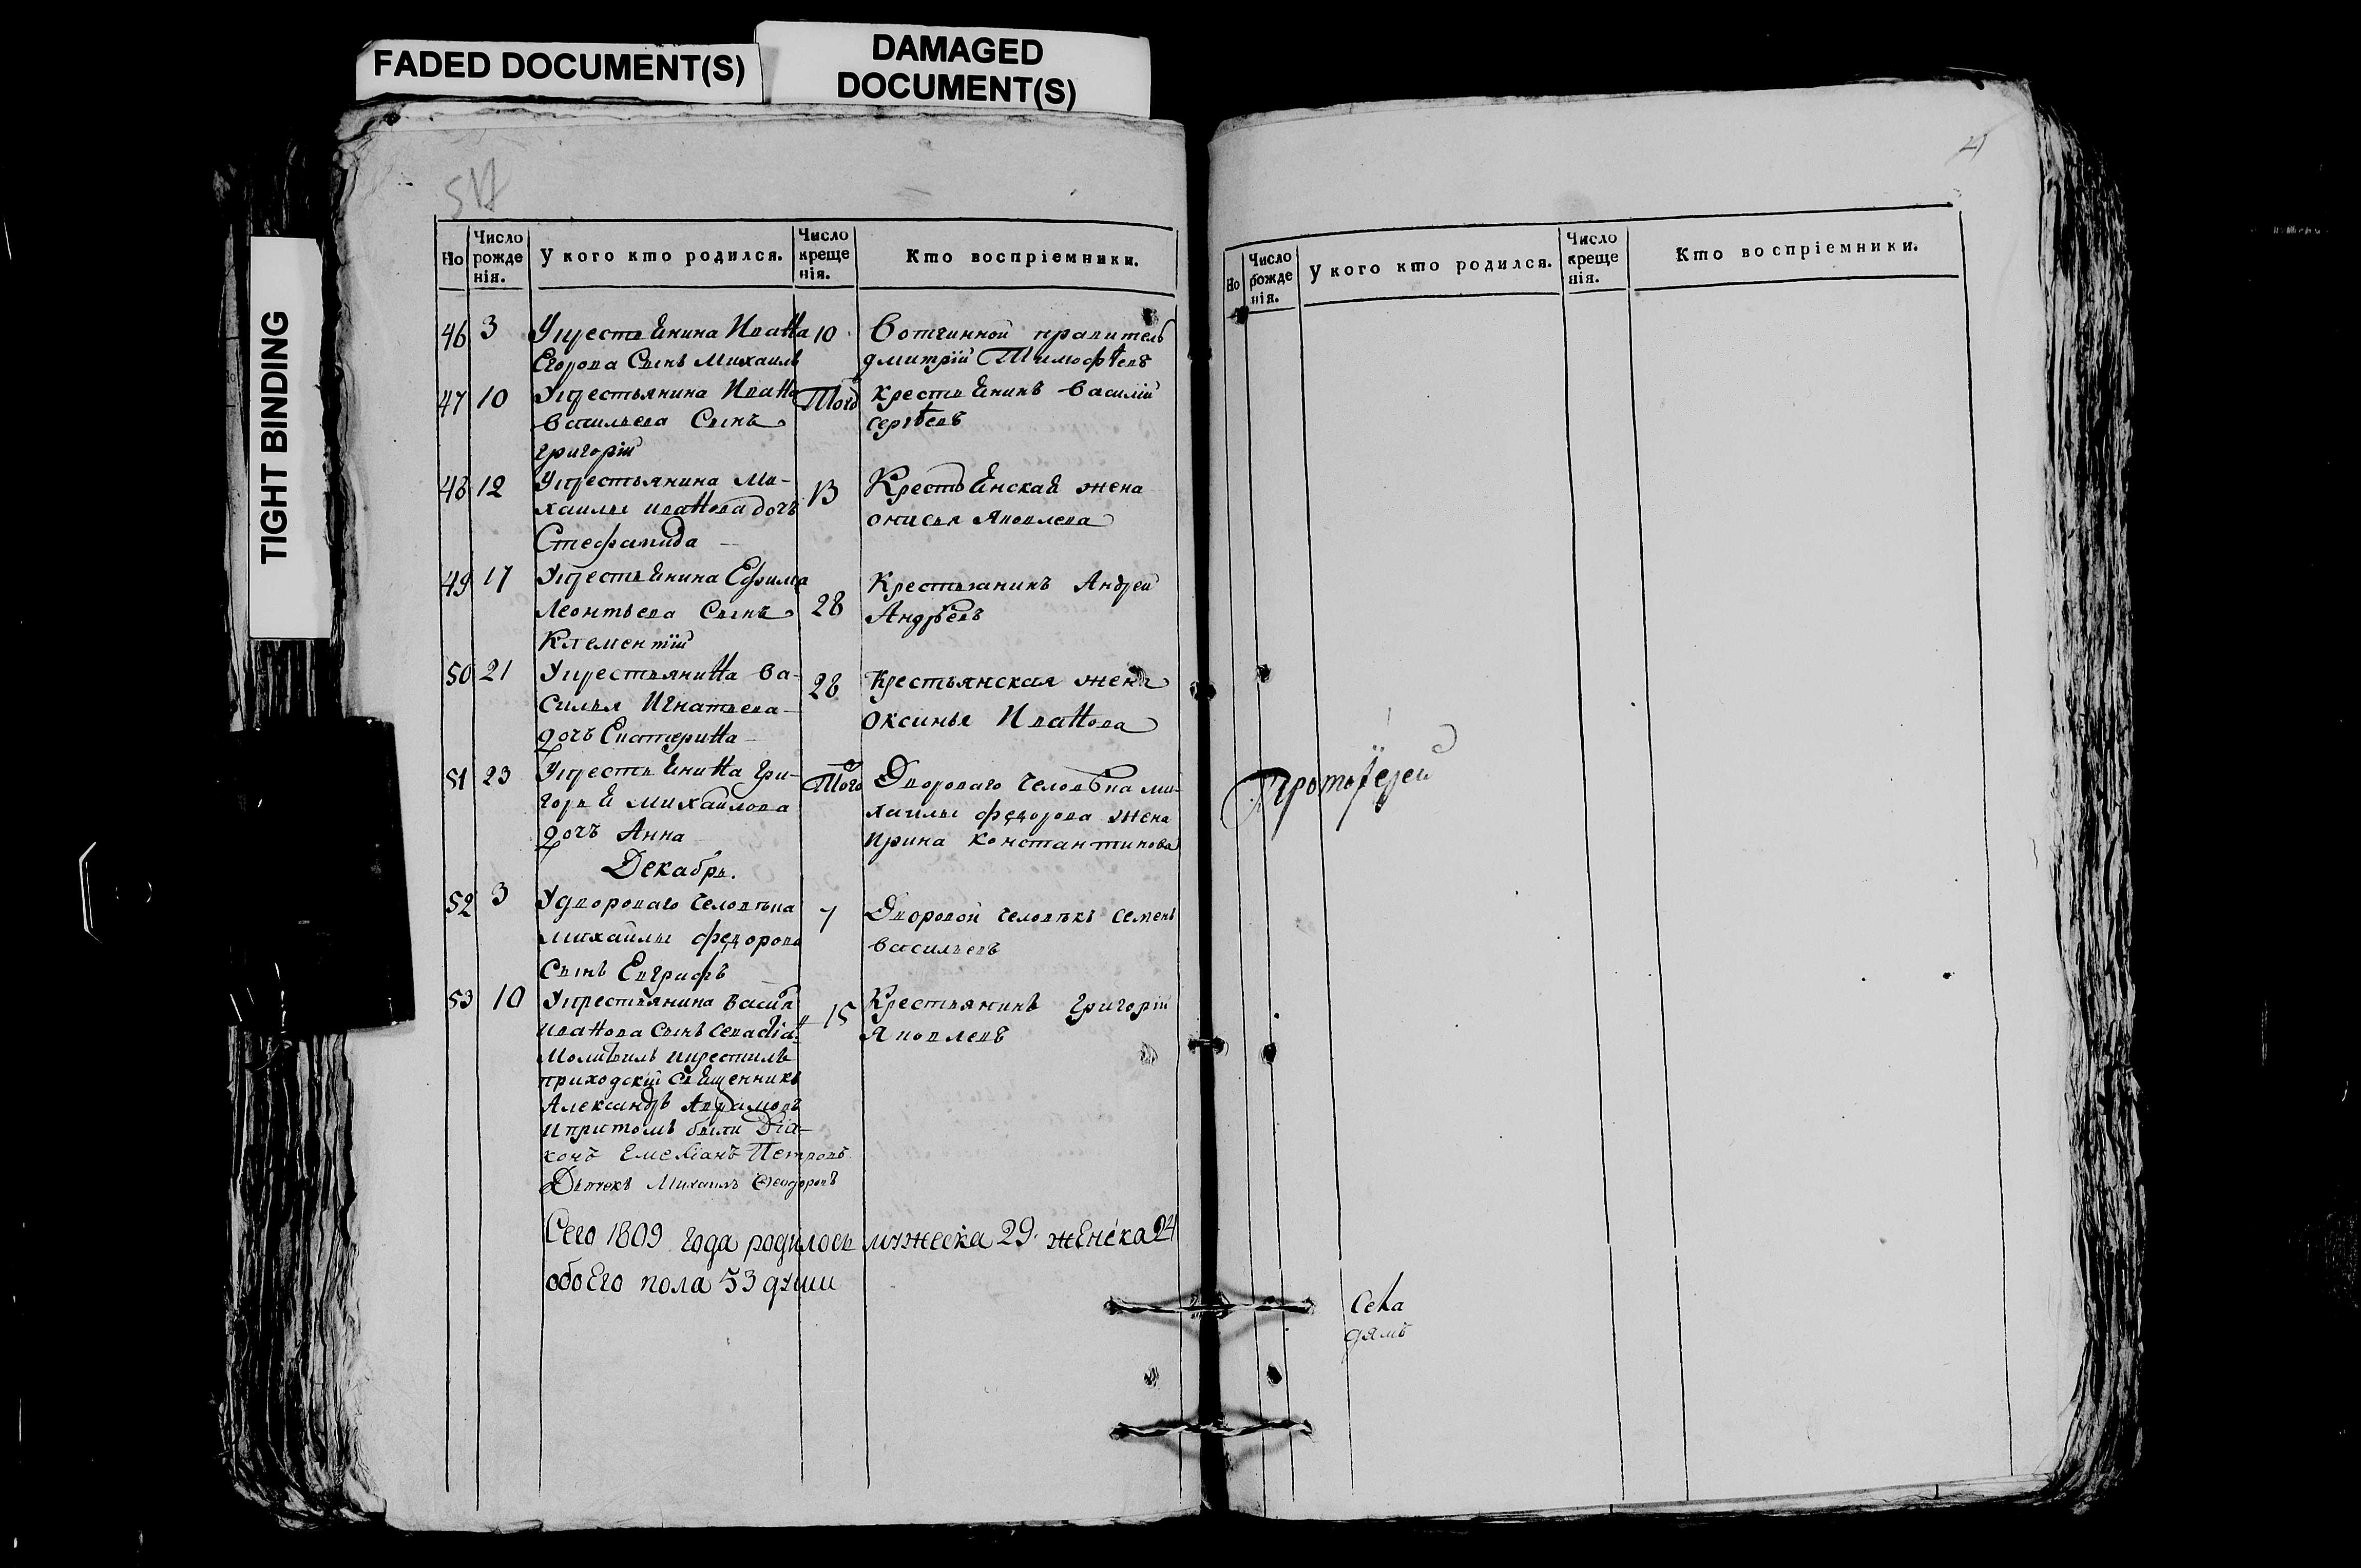 FADED DOCUMENT(S)
DAMAGED
DOCUMENT(S)
TIGHT BINDING
Но
Число рожденія.
У кого кто родился.
Число крещенія.
Кто воспріемники.
46 3 У крестьянина Ивана 10 Вотчинной правитель
Егорова сынъ Михаилъ дмитрій Тимофѣевъ
47 10 У крестьянина Ивана Того крестьянинъ Василій
Васильева сынъ сергѣевъ
григорій
48 12 У крестьянина Ми- 13 Крестьянская жена
хаилы иванова дочь онисья Яковлева
Стефанида
49 17 У крестьянина Ефима 28 Крестьянинъ Андрей
Леонтьева сынъ Андрѣевъ
Клементій
50 21 У крестьянина ва- 28 крестьянская жена
силья Игнатьева оксинья Иванова
дочь Екатерина
51 23 У крестьянина Гри- Того Двороваго человѣка ми-
горья михайлова хаилы федорова жена
дочь Анна Ирина константинова
Декабрь.
52 3 У двороваго человѣка 7 Дворовой человѣкъ семенъ
михайлы федорова васильевъ
сынъ Евграфъ
53 10 У крестьянина васил 15 Крестьянинъ григорій
иванова сынъ севастіа- Яковлевъ
молитвилъ и крестилъ
приходскій священникъ
Александръ Аврамовъ
и притомъ были Діа-
конъ Емеліанъ Петровъ
Дьячекъ Михаилъ Ѳеодоровъ
Сего 1809 года родилось мужеска 29 женска 24
обоего пола 53 души
Но
Число рожденія.
У кого кто родился.
Число крещенія.
Кто воспріемники.
Протоіерей
Села